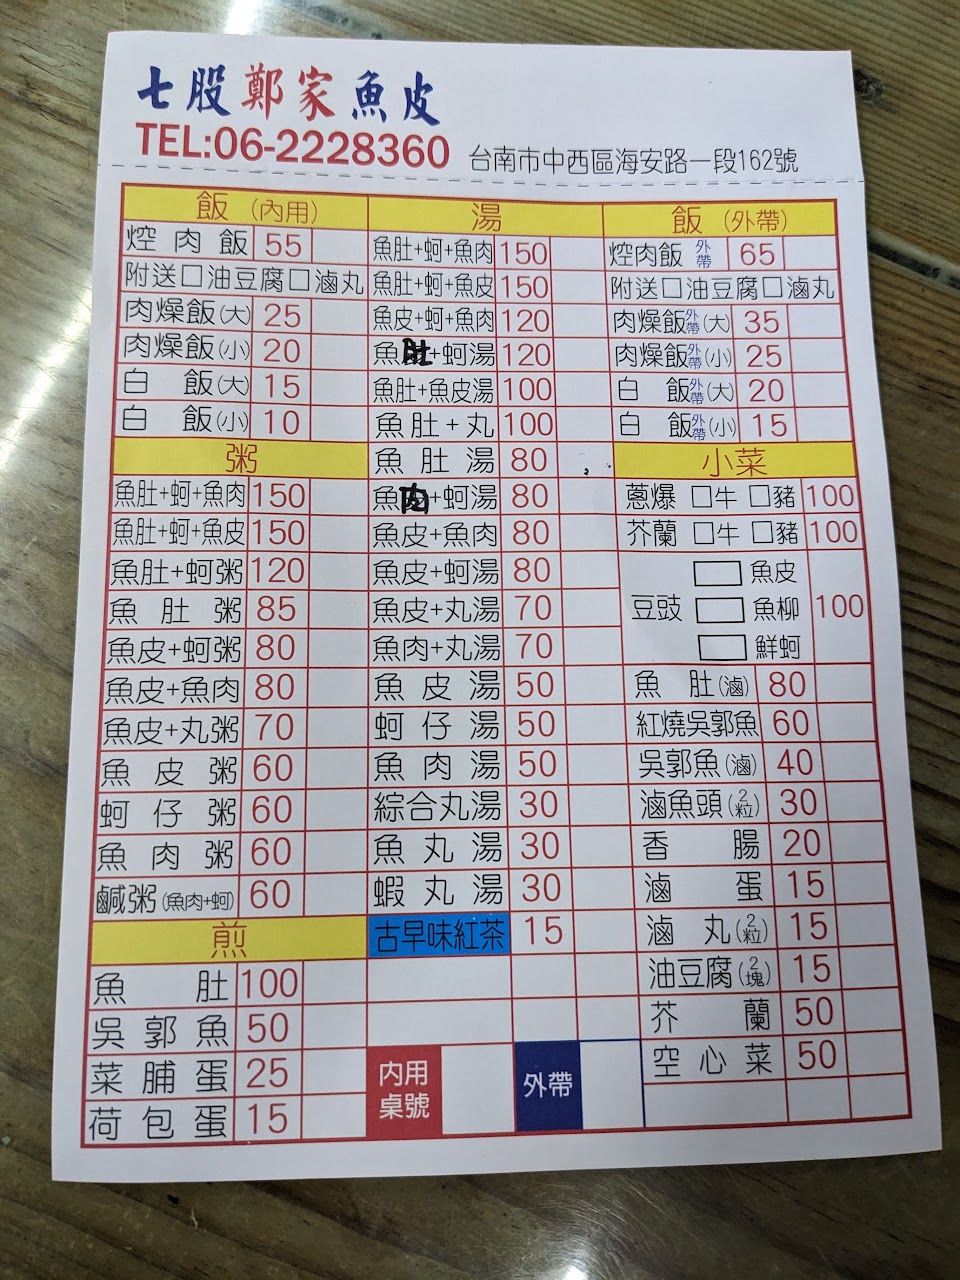 七股鄭家魚皮
TEL:06-2228360 台南市中西區海安路一段162號
飯（內用）
焢肉飯 55
附送□油豆腐□滷丸
肉燥飯(大) 25
肉燥飯(小) 20
白飯(大) 15
白飯(小) 10
粥
魚肚+蚵+魚肉 150
魚肚+蚵+魚皮 150
魚肚+蚵粥 120
魚肚粥 85
魚皮+蚵粥 80
魚皮+魚肉 80
魚皮+丸粥 70
魚皮粥 60
蚵仔粥 60
魚肉粥 60
鹹粥(魚肉+蚵) 60
煎
魚肚 100
吳郭魚 50
菜脯蛋 25
荷包蛋 15
湯
魚肚+蚵+魚肉 150
魚肚+蚵+魚皮 150
魚皮+蚵+魚肉 120
魚肚+蚵湯 120
魚肚+魚皮湯 100
魚肚+丸 100
魚肚湯 80
魚肉+蚵湯 80
魚皮+魚肉 80
魚皮+蚵湯 80
魚皮+丸湯 70
魚肉+丸湯 70
魚皮湯 50
蚵仔湯 50
魚肉湯 50
綜合丸湯 30
魚丸湯 30
蝦丸湯 30
古早味紅茶 15
內用桌號
外帶
飯（外帶）
焢肉飯 外帶 65
附送□油豆腐□滷丸
肉燥飯外帶(大) 35
肉燥飯外帶(小) 25
白飯外帶(大) 20
白飯外帶(小) 15
小菜
蔥爆 □牛 □豬 100
芥蘭 □牛 □豬 100
豆豉 □魚皮 □魚柳 □鮮蚵 100
魚肚(滷) 80
紅燒吳郭魚 60
吳郭魚(滷) 40
滷魚頭(2粒) 30
香腸 20
滷蛋 15
滷丸(2粒) 15
油豆腐(2塊) 15
芥蘭 50
空心菜 50